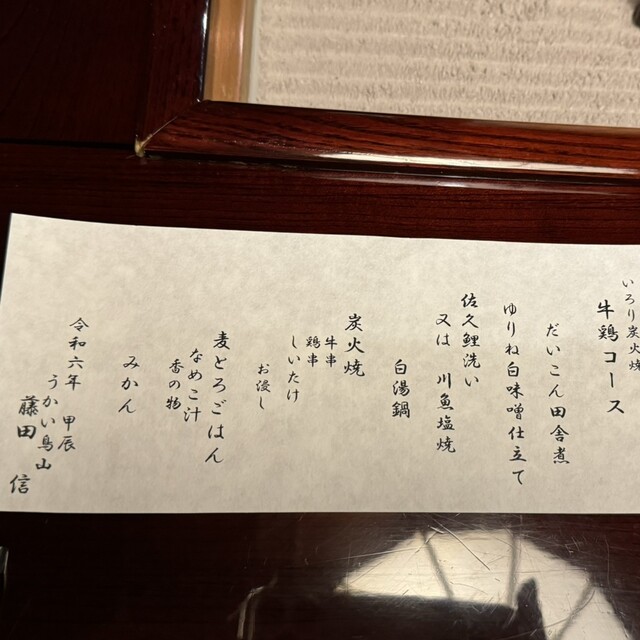 いろり炭火焼
牛鶏コース
だいこん田舎煮
ゆりね白味噌仕立て
佐久鯉洗い
又は 川魚塩焼
白湯鍋
炭火焼
牛串
鶏串
しいたけ
お浸し
麦とろごはん
なめこ汁
香の物
みかん
令和六年 甲辰
うかい鳥山
藤田 信